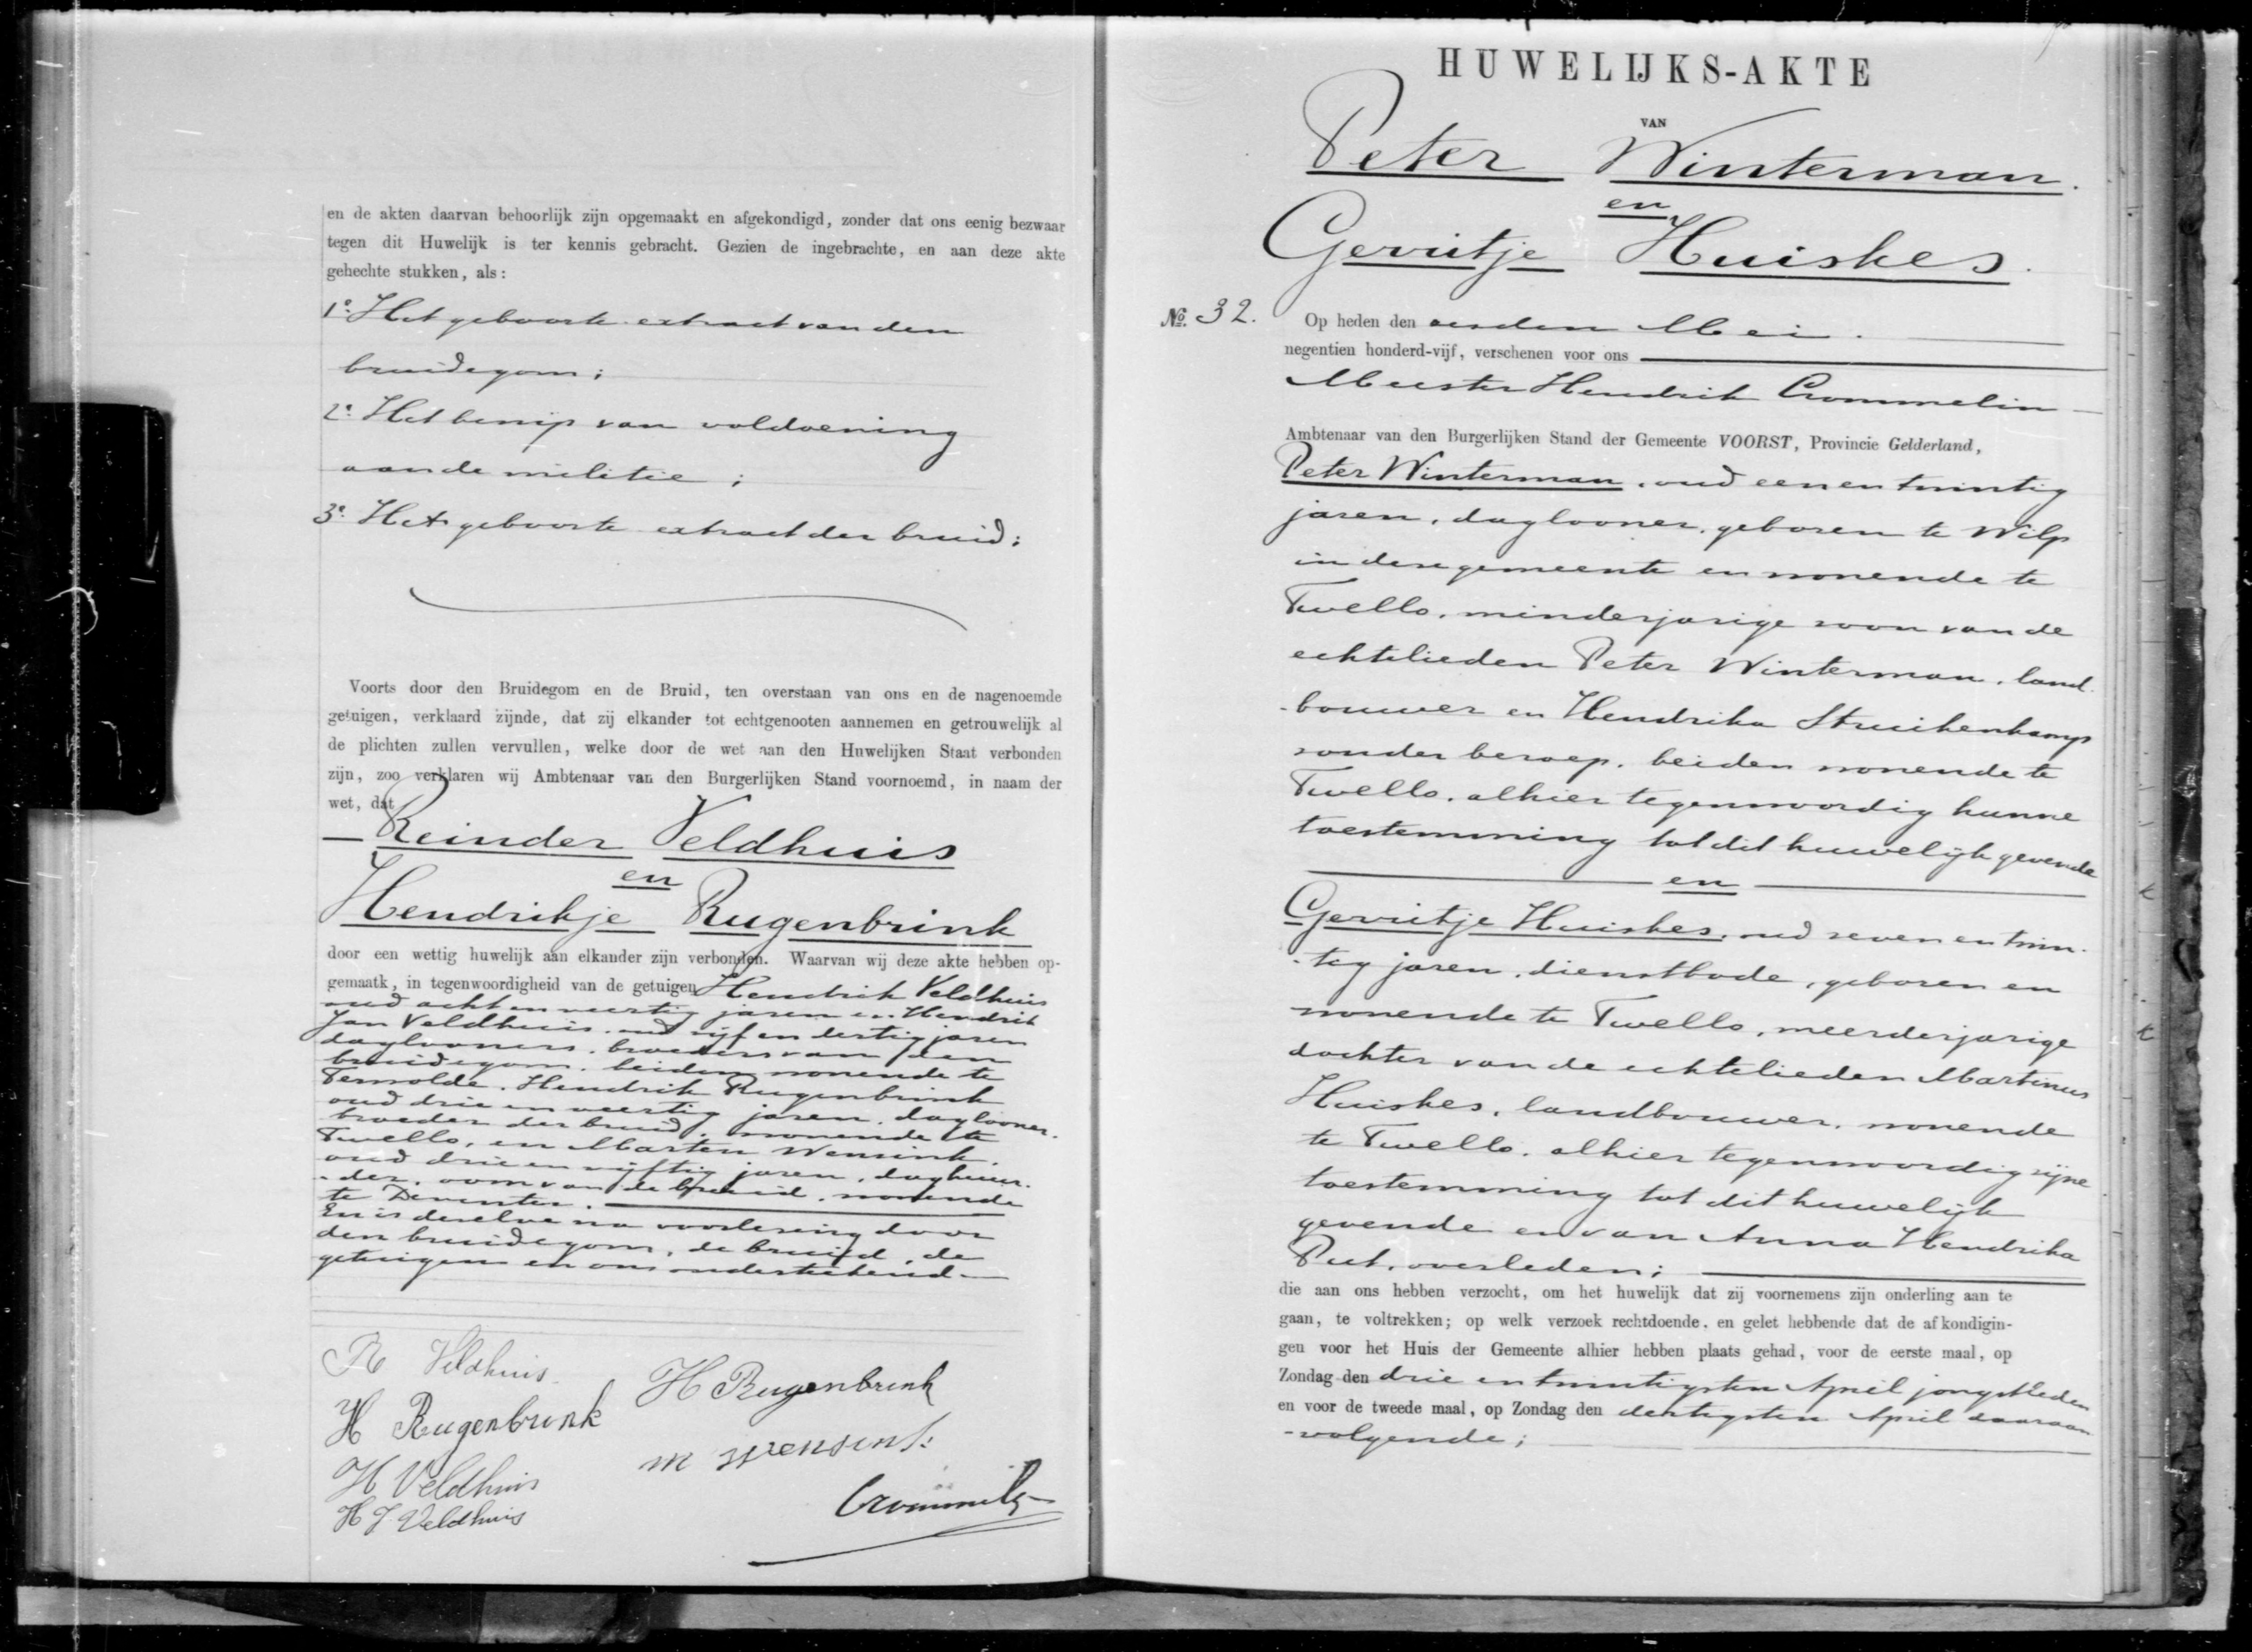 en de akten daarvan behoorlijk zijn opgemaakt en afgekondigd, zonder dat ons eenig bezwaar
tegen dit Huwelijk is ter kennis gebracht. Gezien de ingebrachte, en aan deze akte
gehechte stukken, als:
1º. Het geboorte-extract van den
bruidegom;
2º. Het bewijs van voldoening
aan de militie;
3º. Het geboorte-extract der bruid;
Voorts door den Bruidegom en de Bruid, ten overstaan van ons en de nagenoemde
getuigen, verklaard zijnde, dat zij elkander tot echtgenooten aannemen en getrouwelijk al
de plichten zullen vervullen, welke door de wet aan den Huwelijken Staat verbonden
zijn, zoo verklaren wij Ambtenaar van den Burgerlijken Stand voornoemd, in naam der
wet, dat
Reinder Veldhuis
en
Hendrikje Rugenbrink
door een wettig huwelijk aan elkander zijn verbonden. Waarvan wij deze akte hebben op-
gemaatk, in tegenwoordigheid van de getuigen Hendrik Veldhuis
oud acht en veertig jaren en Hendrik
Jan Veldhuis, oud vijf en dertig jaren
daglooners, broeders van den
bruidegom, beiden wonende te
Terwolde, Hendrik Rugenbrink
oud drie en veertig jaren, daglooner,
broeder der bruid, wonende te
Twello, en Marten Wensink,
oud drie en vijftig jaren, daghuur-
-der, oom van de bruid, wonende
te Deventer.
En is dezelve na voorlezing door
den bruidegom, de bruid, de
getuigen en ons onderteekend
R Veldhuis
H Rugenbrink
H Rugenbrink
m wensink
H Veldhuis
H J Veldhuis
Crommelin
HUWELIJKS-AKTE
VAN
Peter Winterman.
en
Gerritje Huiskes.
Nº. 32. Op heden den zesden Mei.
negentien honderd-vijf, verschenen voor ons
Meester Hendrik Crommelin
Ambtenaar van den Burgerlijken Stand der Gemeente VOORST, Provincie Gelderland,
Peter Winterman, oud een en twintig
jaren, daglooner, geboren te Wilp
in deze gemeente en wonende te
Twello, minderjarige zoon van de
echtelieden Peter Winterman, land-
-bouwer en Hendrika Struikenkamp
zonder beroep, beiden wonende te
Twello, alhier tegenwoordig hunne
toestemming tot dit huwelijk gevende
en
Gerritje Huiskes, oud zeven en twin-
-tig jaren, dienstbode, geboren en
wonende te Twello, meerderjarige
dochter van de echtelieden Martinus
Huiskes, landbouwer, wonende
te Twello, alhier tegenwoordig zijne
toestemming tot dit huwelijk
gevende en van Anna Hendrika
Put, overleden;
die aan ons hebben verzocht, om het huwelijk dat zij voornemens zijn onderling aan te
gaan, te voltrekken; op welk verzoek rechtdoende, en gelet hebbende dat de afkondigin-
gen voor het Huis der Gemeente alhier hebben plaats gehad, voor de eerste maal, op
Zondag den drie en twintigsten April jongstleden
en voor de tweede maal, op Zondag den dertigsten April daaraan
-volgende;